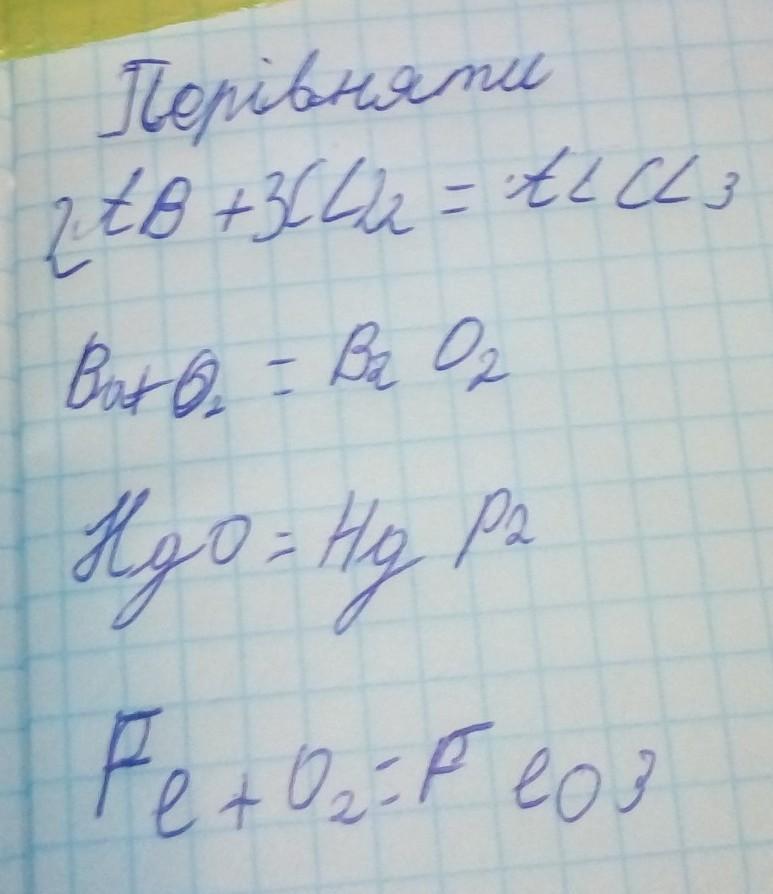 Перівняти
2AB + 3CL2 = ALCL3
Ba + O2 = B2 O2
HgO = Hg P2
Fe + O2 = FeO3